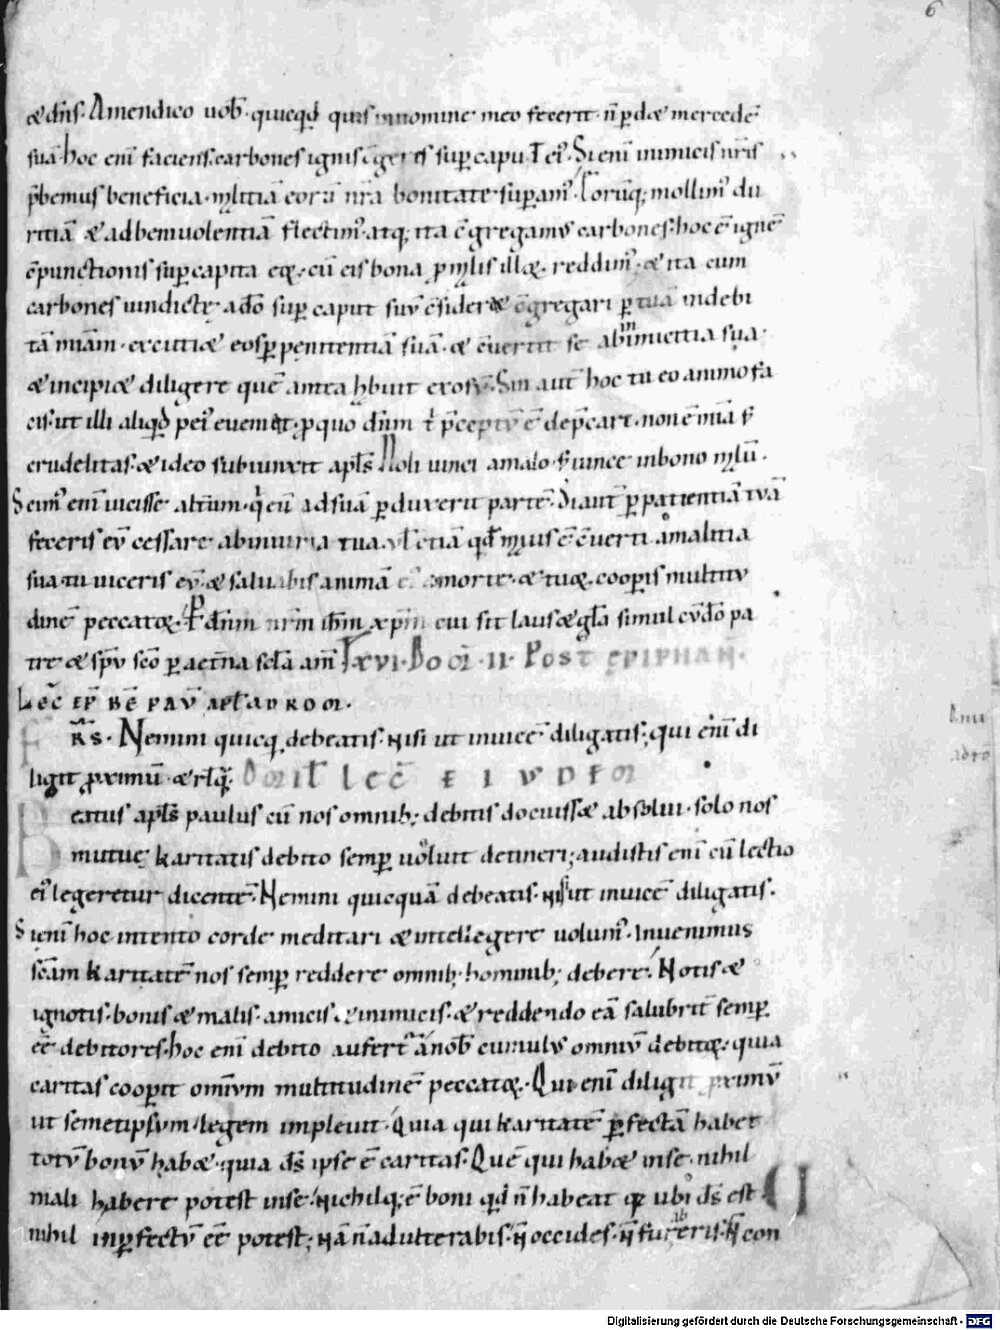 6
& dn̄s. Amendico uob̄. quicq̄d quis innomine meo fecerit. n̄ ꝑd& mercedē
suā. hoc eni͂ faciens. carbones ignis c̄geres suꝑ capu͂ ei᾽. Si eni͂ inimicis nr̄is
p̄bemus beneficia. malitiā eorū nr̄a bonitate suꝑam᾽. Eorūq; mollim᾽ du
ritiā & adbeniuolentiā flectim᾽. atq; ita c̄gregam᾽ carbones. hoc ē ignē
c̄punctionis suꝑ capita eoꝝ. cū eis bona ꝓ malis illoꝝ. reddim᾽. & ita cum
carbones uindictę. adō suꝑ caput suū c̄sider& c̄gregari ꝑ tuā indebi
tā miām. excuti& eos ꝑ penitentiā suā. & c̄uertit se abinimicitia sua.
& incipi& diligere quē antea h̄buit exosū. Sin aut̄ hoc tu eo animo fa
cis. ut illi aliqd̄ pei᾽ eueniat. ꝓ quo dn̄m t̄ p̄ceptū ē dep̄cari. non ē mīa s;
crudelitas. & ideo subiunxit apl̄s Noli uinci amalo. s; uince inbono malū.
Scim᾽ eni͂ uicisse alterum. qi eū adsuā ꝑduxerit partē. Si aut̄ ꝑ patientiā tuā
feceris eū cessare abiniuria tua ul̄ etiā qd̄ maius ē c̄uerti amalitia
sua. tu uiceris eū. & saluabis animā ei᾽ amorte. & tuoꝝ. cooꝑis multitu
dinē peccatoꝝ. P dn̄m nr̄m ih̄m xp̄m cui sit laus & gl̄a simul cūdō pa
tre & sp̄u sc̄o ꝑ aet̄na scl̄a am̄. XVI. DOM̄. II. POST EPIPHAN.
LEC̄ EP̄ BĒ PAU͂ APL̄ AD ROM̄.
FR̄S. Nemini quicq̄ debeatis. nisi ut inuicē diligatis; qui eni͂ di
ligit ꝓximū. & rlq̄. OMIL̄ LEC̄ EIUDEM
Beatus apl̄s paulus cū nos omnib; debitis docuiss& absolui. solo nos
mutuę karitatis debito semꝑ uoluit detineri; audistis eni͂ cū lectio
ei᾽ legeretur dicentē. Nemini quicquā debeatis. nisi ut inuicē diligatis.
Si eni͂ hoc intento corde meditari & intellegere uolum᾽. Inuenimus
scām karitatē nos semꝑ reddere omnib; hominib; debere. Notis &
ignotis. bonis & malis. amicis. & inimicis. & reddendo eā salubrit̄ semꝑ
eē debitores. hoc eni͂ debito aufert̄ anob̄ cumulus omniū debitoꝝ. quia
caritas cooꝑit omnium multitudinē peccatoꝝ. Qui eni͂ diligit ꝓximū
ut semetipsum. legem impleuit. Quia qui karitatē ꝑfectā habet
totū bonū hab&. quia ds̄ ipse ē caritas. Quē qui hab& inse. nihil
mali habere potest inse. nichilq; ē boni qd̄ n̄ habeat qꝛ ubi ds̄ est
nihil inꝑfectū eē potest; nā n̄ adulterabis. n̄ occides. n̄ furaberis. n̄ con